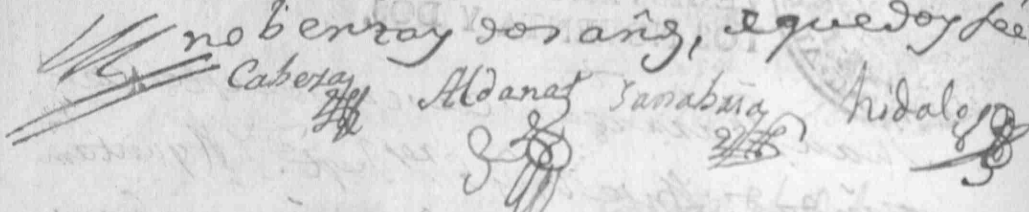 nobenta y dos añs, de que doy fee
Cabeza Aldana Sanabria hidalgo